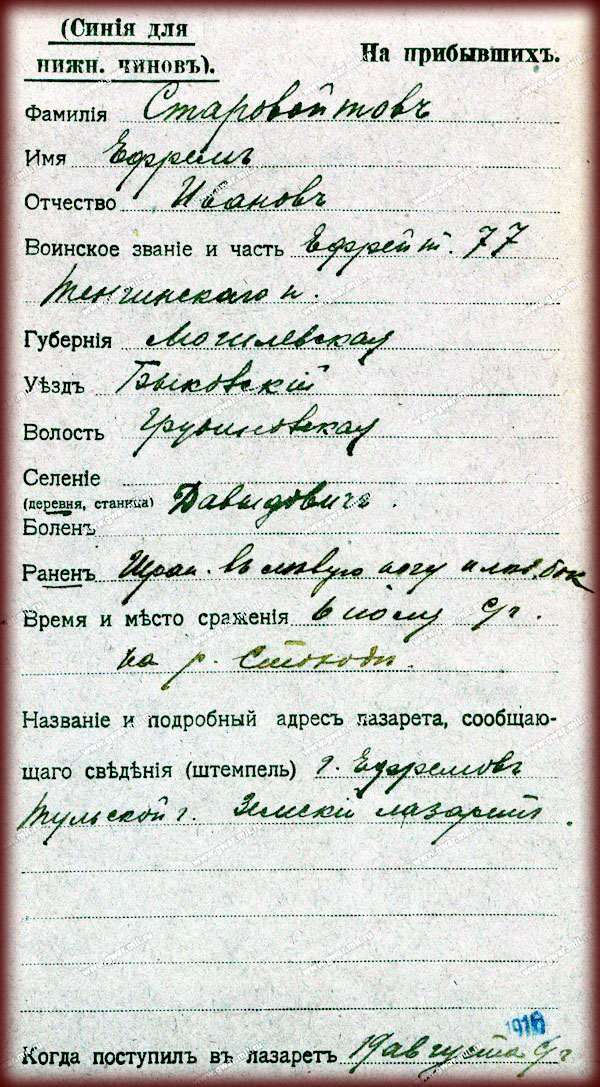 (Синія для
нижн. чиновъ).
На прибывшихъ.
Фамилія Старовойтовъ
Имя Ефремъ
Отчество Ивановъ
Воинское званіе и часть Ефрейт. 77
Тенгинскаго п.
Губернія Могилевская
Уѣздъ Быковскій
Волость Грудиновская
Селеніе
(деревня, станица) Давыдовичи.
Боленъ
Раненъ Шрап. въ лѣвую ногу и лѣв. бок
Время и мѣсто сраженія 6 іюля с/г.
на р. Стоходъ.
Названіе и подробный адресъ лазарета, сообщаю-
щаго свѣдѣнія (штемпель) г. Ефремовъ
Тульской г. Земскій лазаретъ.
1916
Когда поступилъ въ лазаретъ 19 августа с/г